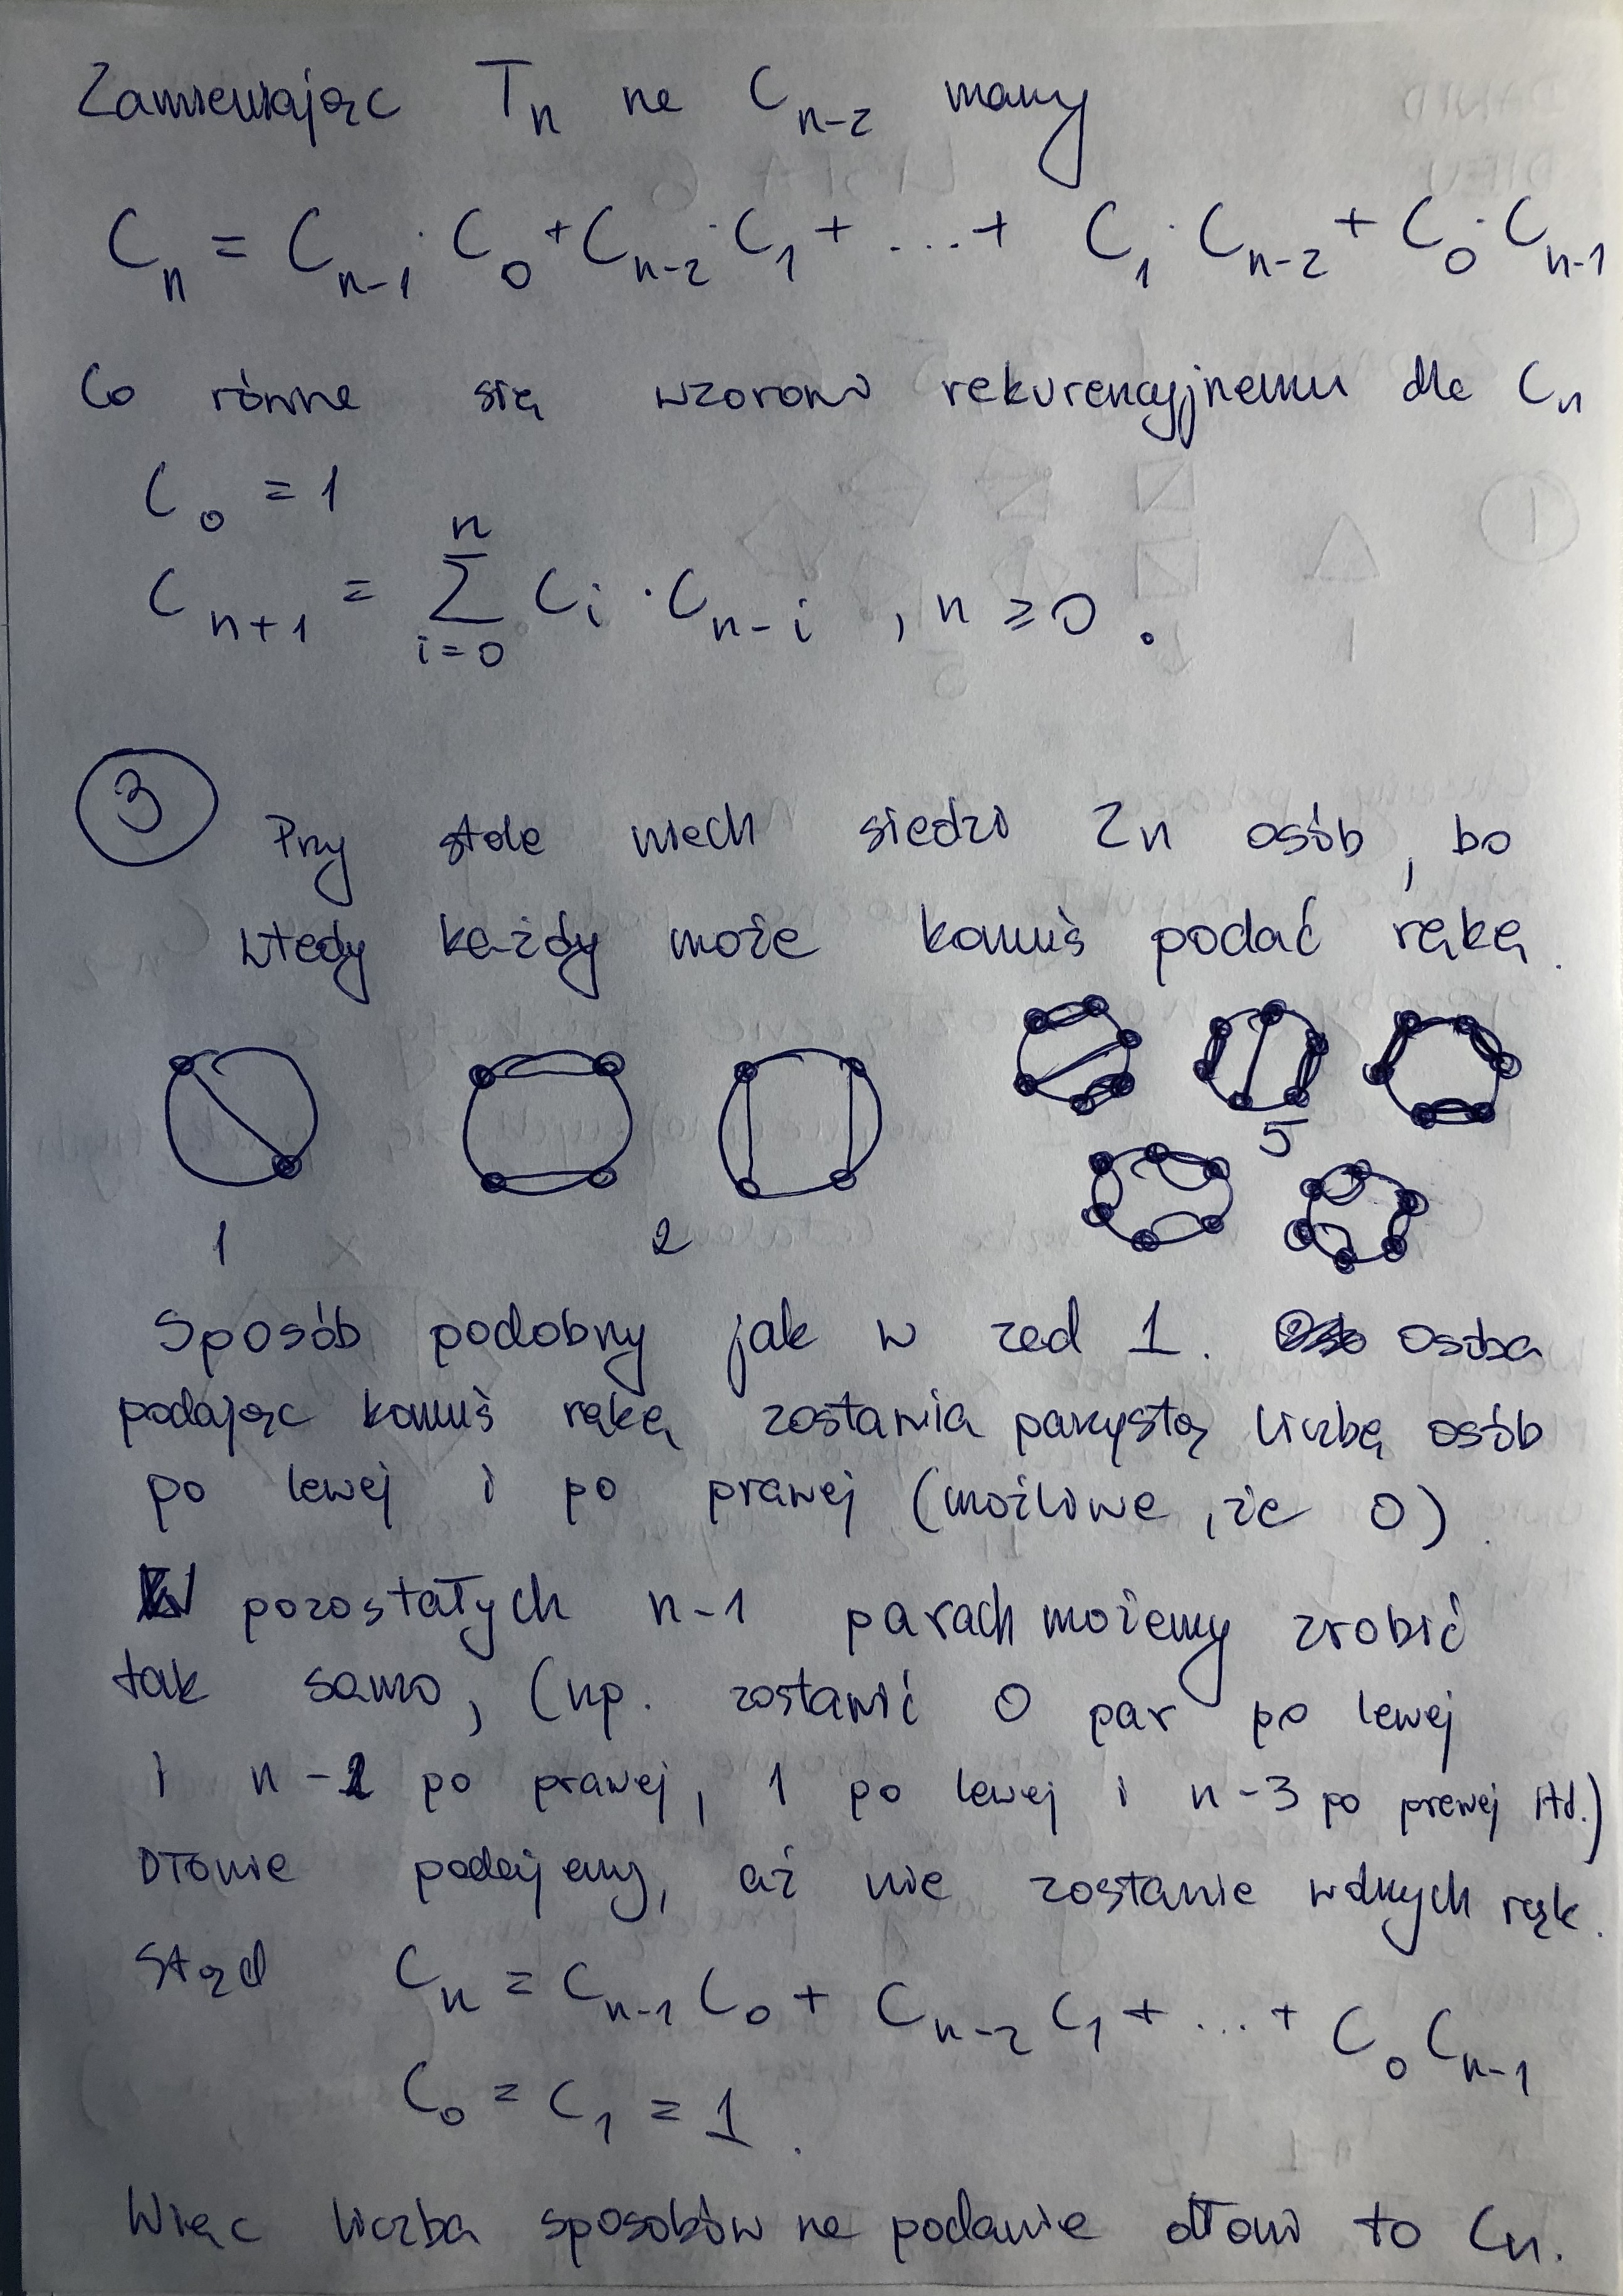 Zamieniając Tₙ na Cₙ₋₂ mamy
Cₙ = Cₙ₋₁ · C₀ + Cₙ₋₂ · C₁ + ... + C₁ · Cₙ₋₂ + C₀ · Cₙ₋₁
Co równe się wzorowi rekurencyjnemu dla Cₙ
C₀ = 1
Cₙ₊₁ = ∑ᵢ₌₀ⁿ Cᵢ · Cₙ₋ᵢ , n ≥ 0 .
3 Przy stole niech siedzi 2n osób, bo
wtedy każdy może komuś podać rękę.
5
1 2
Sposób podobny jak w zad 1. osoba
podając komuś rękę zostawia parzystą liczbę osób
po lewej i po prawej (możliwe, że 0).
W pozostałych n-1 parach możemy zrobić
tak samo, (np. zostawić 0 par po lewej
i n-2 po prawej, 1 po lewej i n-3 po prawej itd.)
Dłonie podajemy, aż nie zostanie wolnych rąk.
Stąd Cₙ = Cₙ₋₁C₀ + Cₙ₋₂C₁ + ... + C₀Cₙ₋₁
C₀ = C₁ = 1.
Więc liczba sposobów na podanie dłoni to Cₙ.